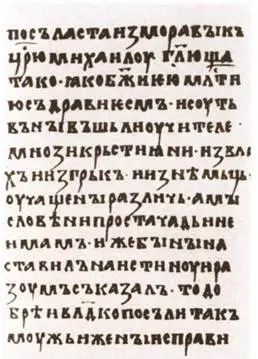 посъластаизморавыкъ
цр҃юмихаилоу гл҃юща
тако · ꙗкобж҃иѥюмл҃ти
юсъдравиѥсмъ · исоуть
вънывъшьлиоучителе
мнозикрьстиꙗни · извла
хъиизгрькъ · иизнѣмьць
оучащеныразличь · амы
словѣнипростачадьине
имамъ · ижебынына
ставилънаистиноуира
зоумъсъказалъ · тодо
брѣивлд҃копосълитакъ
моужьиженыисправи